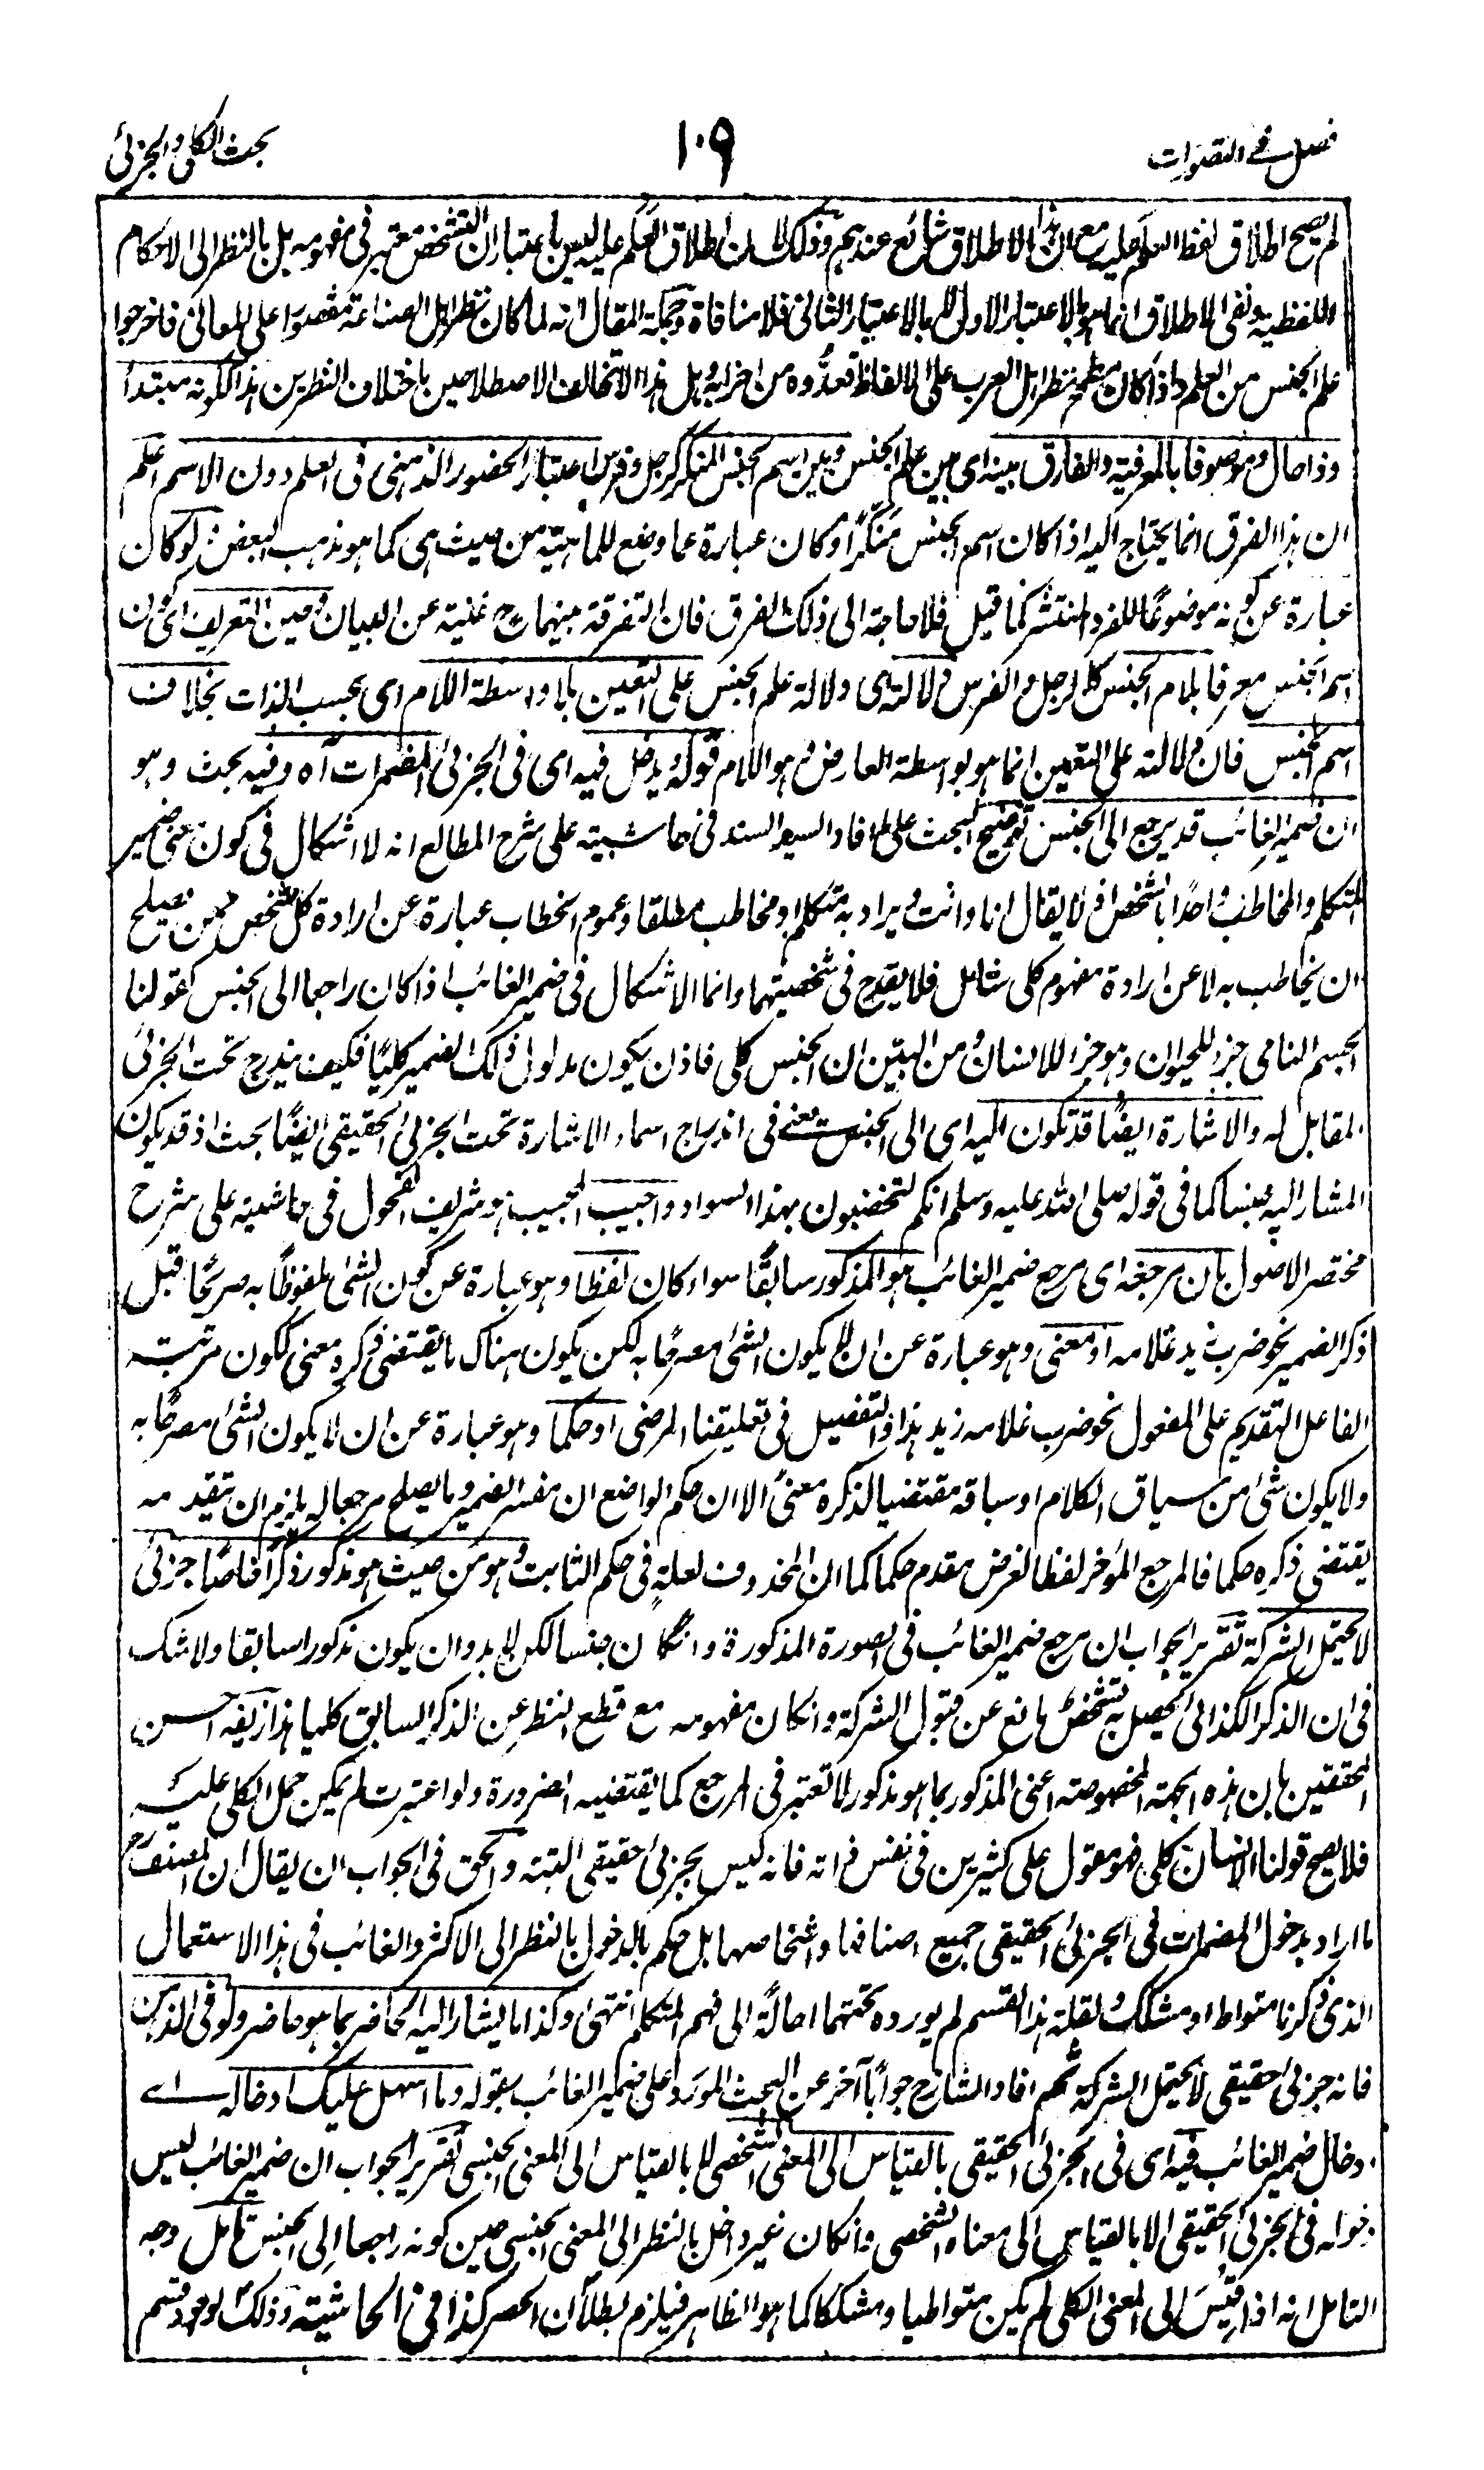 فصل في التصورات
١٠٩
بحث الكلي والجزئي
لم يصح اطلاق لفظ العلم عليه مع ان هذا الاطلاق شائع عندهم وذلك لان اطلاق العلم عليه ليس باعتبار ان التشخص معتبر في مفهومه بل بالنظر الى الاحكام
اللفظية ونفي الاطلاق انما هو بالاعتبار الاول لا بالاعتبار الثاني فلا منافاة وجملة المقال انه لما كان نظر اهل الصناعة مقصورا على المعاني فاخرجوا
علم الجنس من العلم واذا كان مطمح نظر اهل العرب على الالفاظ فعدّوه من افراده بل هذا الا تخالف الاصطلاحين باختلاف النظرين هذا لكونه مبتدأ
وذا حال وموصوفا بالمعرفة والفارق بينه اى بين علم الجنس وبين اسم الجنس المنكر كرجل وفرس اعتبار الحضور الذهني في العلم دون الاسم اعلم
ان هذا الفرق انما يحتاج اليه اذا كان اسم الجنس منكّرا وكان عبارة عما وضع للماهية من حيث هي كما هو مذهب البعض ولو كان
عبارة عن كونه موضوعا للفرد المنتشر كما قيل فلا حاجة الى ذلك الفرق فان التفرقة بينهما ح غنية عن البيان وحين التعريف اى كون
اسم الجنس معرفا بلام الجنس كالرجل والفرس دلالته اى دلالة علم الجنس على التعين بلا واسطة اللام اى بحسب الذات بخلاف
اسم الجنس فان دلالته على التعين انما هو بواسطة العارض وهو اللام قوله ويدخل فيه اى في الجزئي المضمرات آه وفيه بحث وهو
ان ضمير الغائب قد يرجع الى الجنس توضيح البحث على ما افاد السيد السند في حاشيته على شرح المطالع انه لا اشكال في كون معنى ضمير
المتكلم والمخاطب واحدا بالشخص اذ لا يقال انا وانت ويراد به متكلم او مخاطب مطلقا وعموم الخطاب عبارة عن ارادة كل شخص ممن يصلح
ان يخاطب به لا عن ارادة مفهوم كلي شامل فلا يقدح في شخصيتهما وانما الاشكال في ضمير الغائب اذا كان راجعا الى الجنس كقولنا
الجسم النامي جزء للحيوان وهو جزء للانسان ومن البيّن ان الجنس كلي فاذن يكون مدلول ذلك الضمير كليًا فكيف يندرج تحت الجزئي
المقابل له والاشارة ايضًا قد تكون اليه اى الى الجنس يعني في اندراج اسماء الاشارة تحت الجزئي الحقيقي ايضًا بحث اذ قد يكون
المشار اليه جنسا كما في قوله صلى الله عليه وسلم انكم لتخضبون بهذا السواد واجيب المجيب هو شريف الفحول في حاشيته على شرح
مختصر الاصول بان مرجعه اى مرجع ضمير الغائب هو المذكور سابقًا سواء كان لفظا وهو عبارة عن كون الشئ ملفوظًا به صريحًا قبل
ذكر الضمير نحو ضرب زيد غلامه او معنى وهو عبارة عن ان لا يكون الشئ مصرحًا به لكن يكون هناك ما يقتضي ذكره معنى ككون مرتبة
الفاعل التقديم على المفعول نحو ضرب غلامه زيد هذا والتفصيل في تعليقنا المرضي او حكما وهو عبارة عن ان لا يكون الشئ مصرحًا به
ولا يكون شئ من سياق الكلام او سباقه مقتضيا لذكره معنىً الا ان حكم الواضع ان مفسر الضمير وما يصلح مرجعا له يلزم ان يتقدمه
يقتضي ذكره حكما فالمرجع المؤخر لفظا لغرض مقدم حكما كما ان المحذوف لعلةٍ في حكم الثابت وهو من حيث هو مذكور ذكرًا خاصًا جزئي
لا يحتمل الشركة تقرير الجواب ان مرجع ضمير الغائب في الصورة المذكورة وان كان جنسا لكن لا بد وان يكون مذكورا سابقا ولا شك
في ان الذكر الكذائي يحصل به تشخص مانع عن قبول الشركة وان كان مفهومه مع قطع النظر عن الذكر السابق كليا هذا زيفه احسن
المحققين بان هذه الجهة المخصوصة اعني المذكور بما هو مذكور لا تعتبر في المرجع كما يقتضيه الضرورة ولو اعتبرت لم يمكن حمل الكلي عليه
فلا يصح قولنا الانسان كلي فهو مقول على كثيرين في نفس ذاته فانه ليس بجزئي حقيقي البتة والحق في الجواب ان يقال ان المصنف رح
ما اراد بدخول المضمرات في الجزئي الحقيقي جميع اصنافها واشخاصها بل حكم بالدخول بالنظر الى الاكثر والغائب في هذا الاستعمال
الذي ذكرنا متواط او مشكك ولقلة هذا القسم لم يورده تحتهما احالةً الى فهم المتكلم انتهى وكذا ما يشار اليه الحاضر بما هو حاضر ولو في الذهن
فانه جزئي حقيقي لا يحتمل الشركة ثم افاد الشارح جوابًا آخر عن البحث المورد على ضمير الغائب بقوله وما اسهل عليك ادخاله اى
ادخال ضمير الغائب فيه اى في الجزئي الحقيقي بالقياس الى المعنى الشخصي لا بالقياس الى المعنى الجنسي تقرير الجواب ان ضمير الغائب ليس
دخوله في الجزئي الحقيقي الا بالقياس الى معناه الشخصي وان كان غير داخل بالنظر الى المعنى الجنسي حين كونه راجعا الى الجنس تأمل وجه
التامل انه اذا قيس الى المعنى الكلي لم يكن متواطيا ومشككا كما هو الظاهر فيلزم بطلان الحصر كذا في الحاشية وذلك لوجود قسم